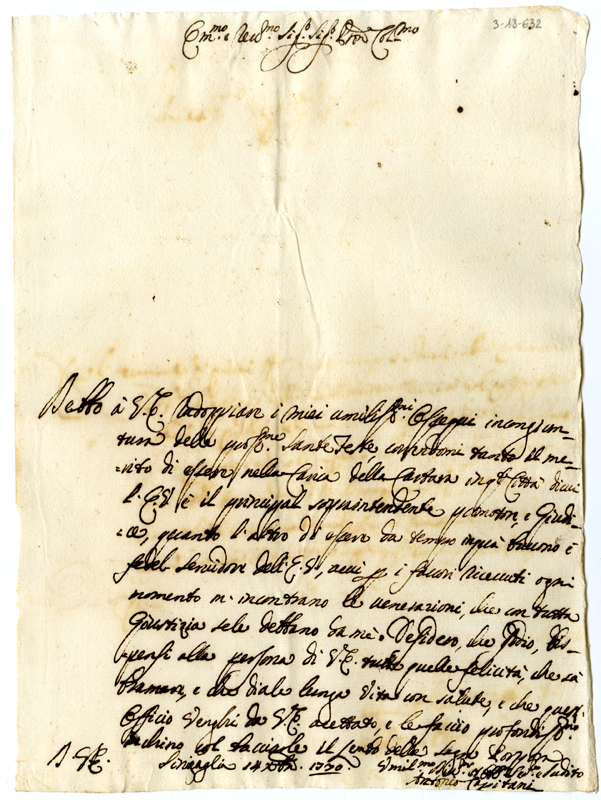 3-13-632
Em.mo e Reu.mo Sig.r Sig.r Pron Col.mo
Debbo à V.E. radoppiare i miei umiliss.mi Ossequi in congiun-
tura delle pross.me Sante Feste correndomi tanto il me-
rito di essere nella Carica della in q.ta Città di cui
l'E.V. è il principal sopraintendente promotore, e Giudi-
ce, quanto l'altro di essere da tempo in quà buono è
fedel Seruidore dell'E.V., a cui p i fauori riceuuti ogni
momento m'incontrano le uenerazioni, che con tutta
Giustizia se le dettano da mè. Desidero, che Iddio, dis-
pensi alla persona di V.E. tutte quelle felicità, che sà
bramare, e che dia le lunga Vita con salute, e che quest'
Officio Venghi da V.E. accettato, e le faccio profondiss.mo
inchino col baciarle il lembo della Sagra Porpora
D V.E.
Sinigaglia 14 Xbre 1730
Vmil.mo Seru.re e Sudito
Antonio Capitani